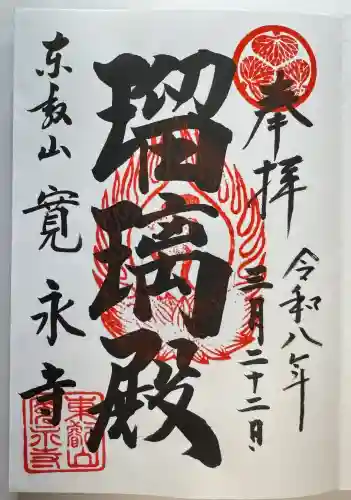 奉拝
令和八年
三月二十二日
瑠璃殿
東叡山
寛永寺
東叡山
寛永寺